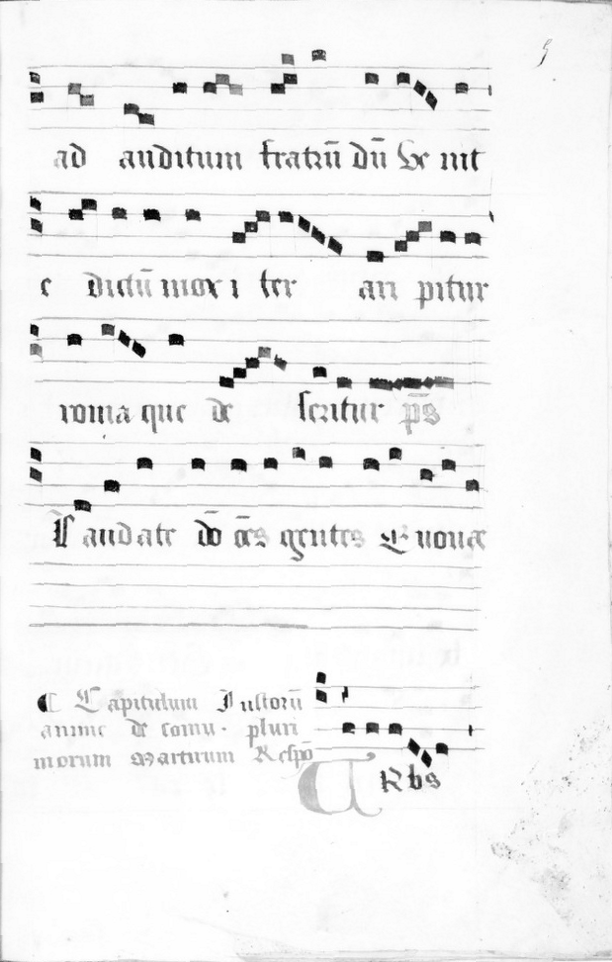 9
ad auditum fratrū dū ve nit
e dictū mox i ter ari pitur
roma que de feritur p̄s
Laudate dō om̄s gentes Evouae
Capitulum Iustorū
anime de comu. pluri
morum Martirum Respo
URbs